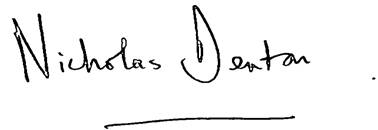 Nicholas Denton